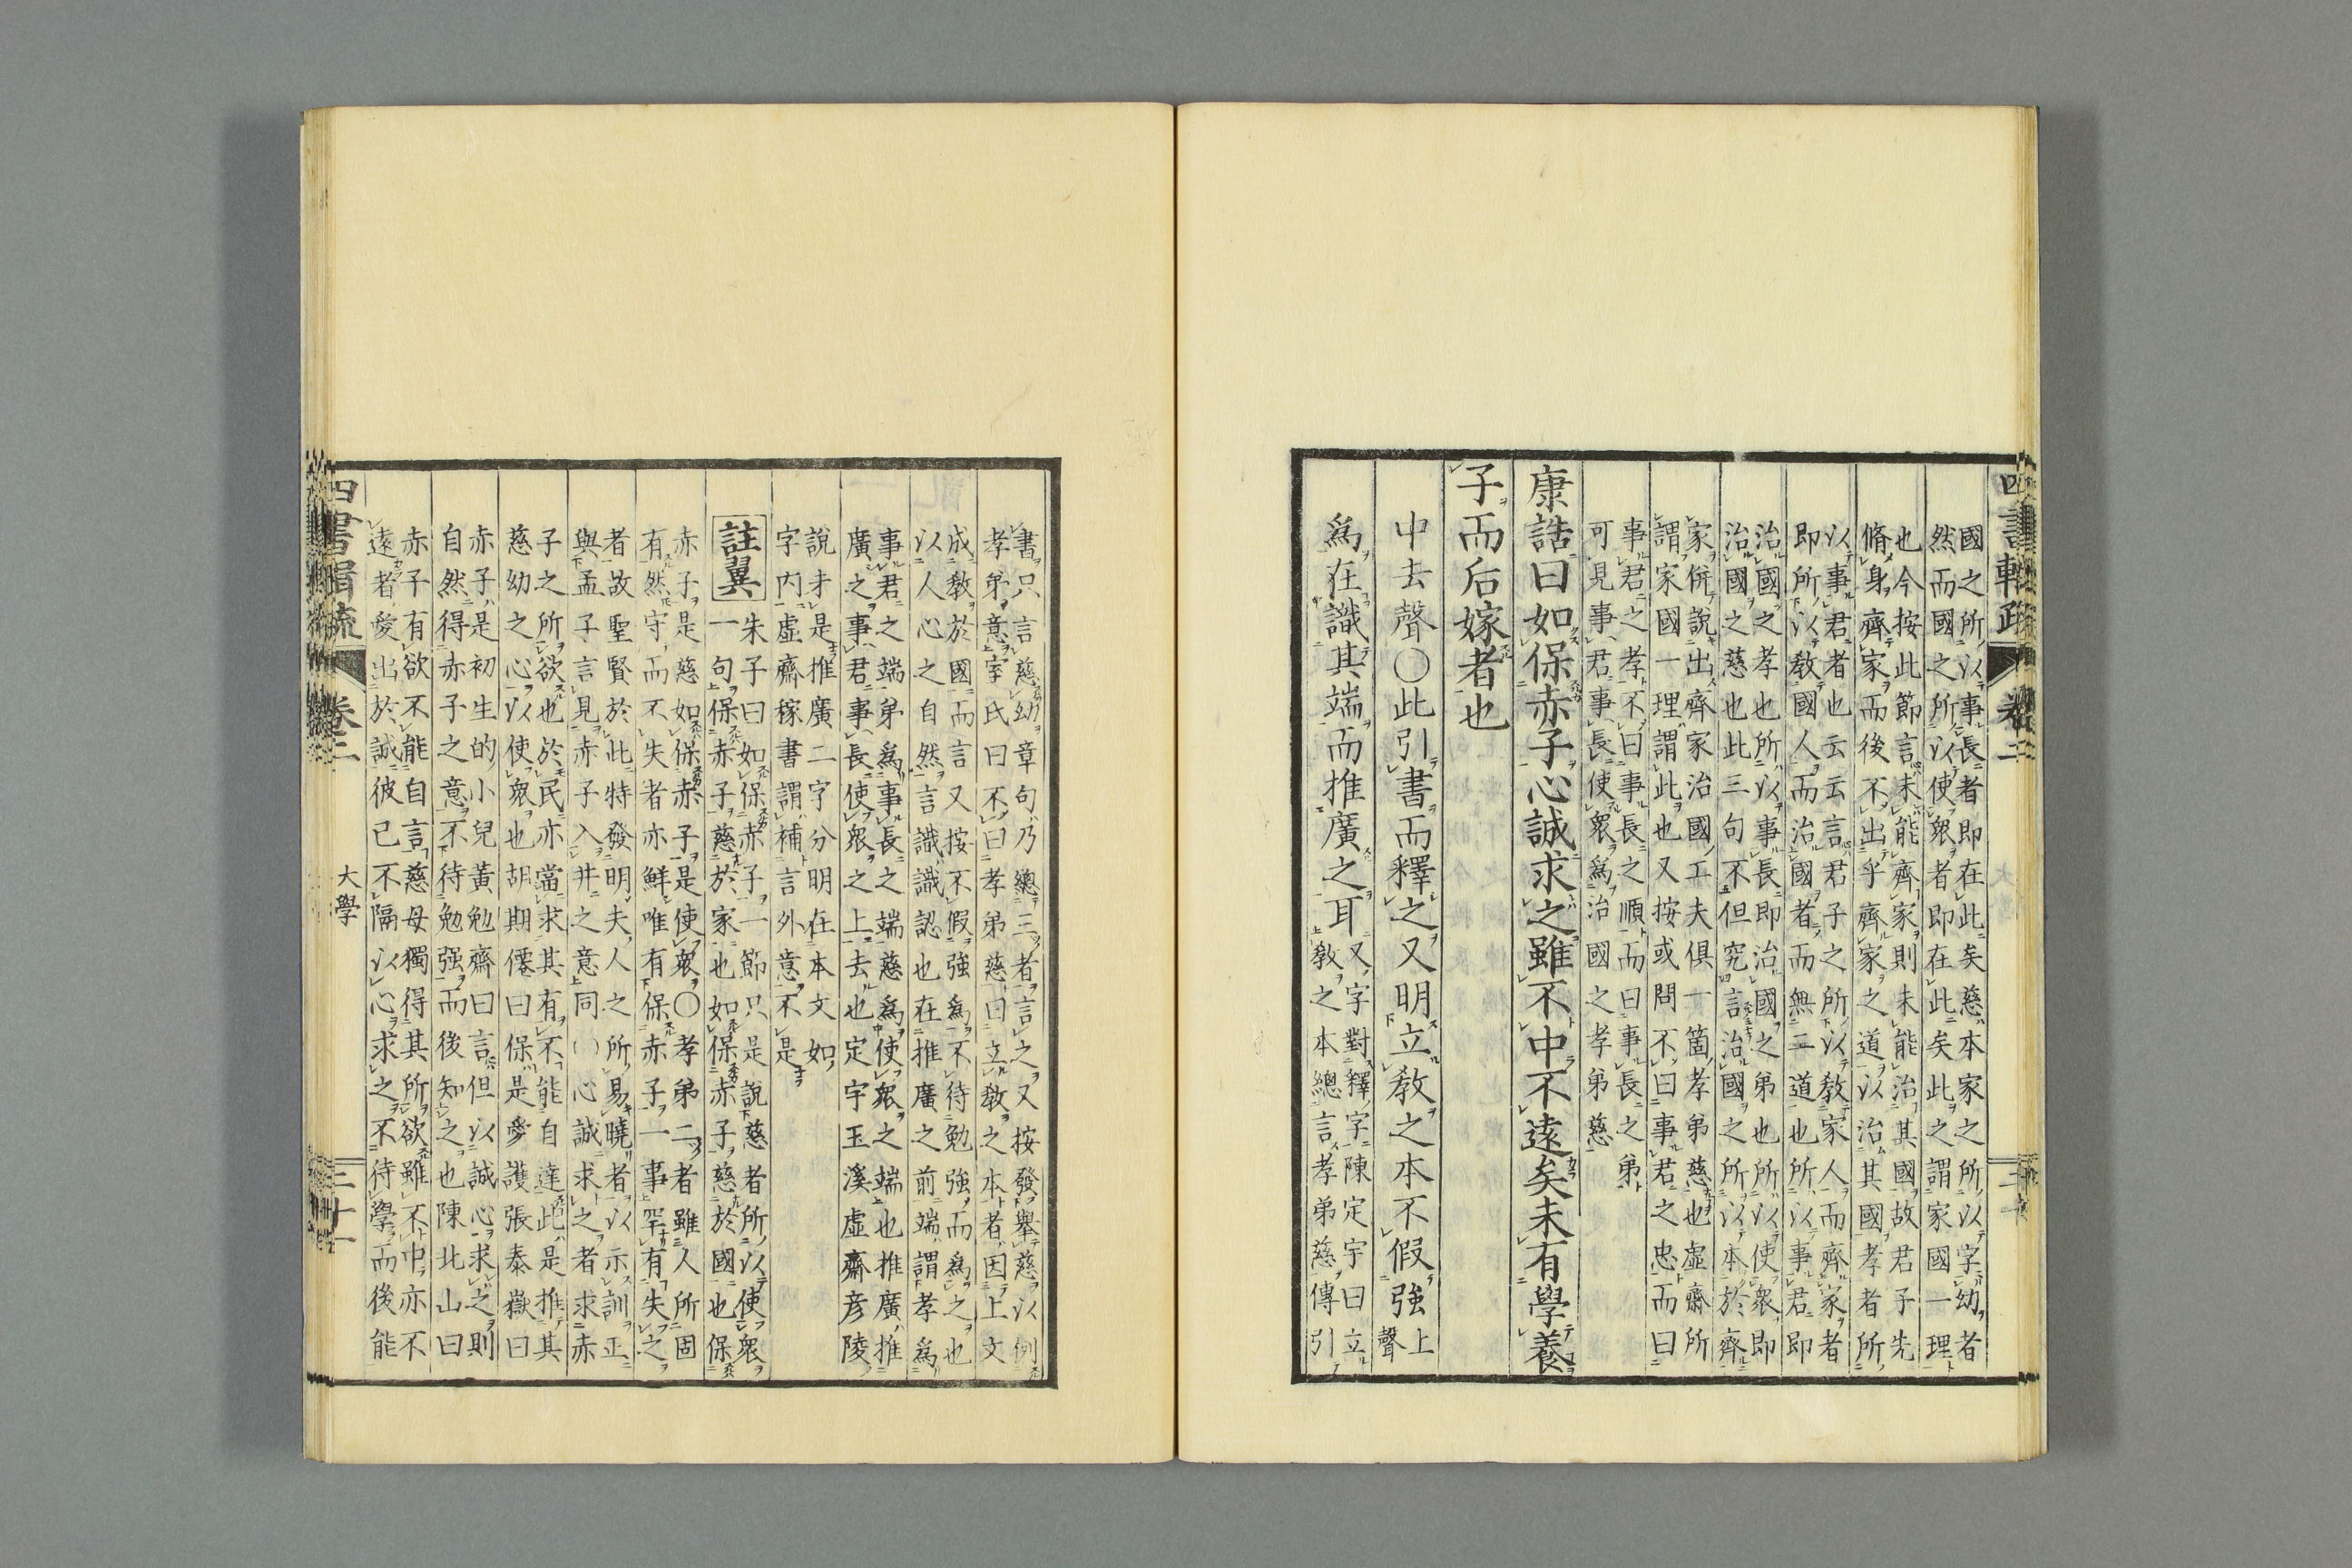 四書輯疏
卷二
國之所以事長者即在此矣慈本家之所以字幼者
然而國之所以使衆者即在此矣此之謂家國一理
也今按此節言未能齊家則未能治其國故君子先
脩身齊家而後不出乎齊家之道以治其國孝者所
以事君者也云云言君子之所以教家人而齊家者
即所以教國人而治國者而無二道也所以事君即
治國之孝也所以事長即治國之弟也所以使衆即
治國之慈也此三句不但究言治國之所以本於齊
家併說出齊家治國工夫俱一箇孝弟慈也虛齋所
謂家國一理謂此也又按或問不曰事君之忠而曰
事君之孝不曰事長之順而曰事長之弟
可見事君事長使衆爲治國之孝弟慈
康誥曰如保赤子心誠求之雖不中不遠矣未有學養
子而后嫁者也
中去聲〇此引書而釋之又明立教之本不假強上聲
爲在識其端而推廣之耳又字對釋字陳定宇曰立
教之本總言孝弟慈傳引
書只言慈幼章句乃總三者言之又按發舉慈以例
孝弟意寄氏曰不曰孝弟慈曰立教之本者因上文
成教於國而言又按不假強爲不待勉強而爲之也
以人心之自然言識識認也在推廣之前端謂孝爲
事君之端弟爲事長之端慈爲使衆之端也推廣推
廣之事君事長使衆之上去也定宇玉溪虛齋彦陵
說才是推廣二字分明在本文如
字內虛齋稼書謂補言外意不是
註翼
朱子曰如保赤子一節只是說慈者所以使衆
一句保赤子慈於家也如保赤子慈於國也保
赤子是慈如保赤子是使衆〇孝弟二者雖人所固
有然守而不失者亦鮮唯有保赤子一事罕有失之
者故聖賢於此特發明夫人之所易曉者以示訓正
與孟子言見赤子入井之意同〇心誠求之者求赤
子之所欲也於民亦當求其有不能自達此是推其
慈幼之心以使衆也胡期僊曰保是愛護張泰嶽曰
赤子是初生的小兒黃勉齋曰言但以誠心求之則
自然得赤子之意不待勉强而後知之也陳北山曰
赤子有欲不能自言慈母獨得其所欲雖不中亦不
遠者愛出於誠彼己不隔以心求之不待學而後能
四書輯疏
卷二
大學
三十一